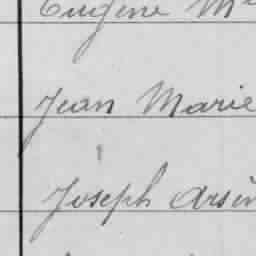 Eugène M
Jean Marie
Joseph Arsèn